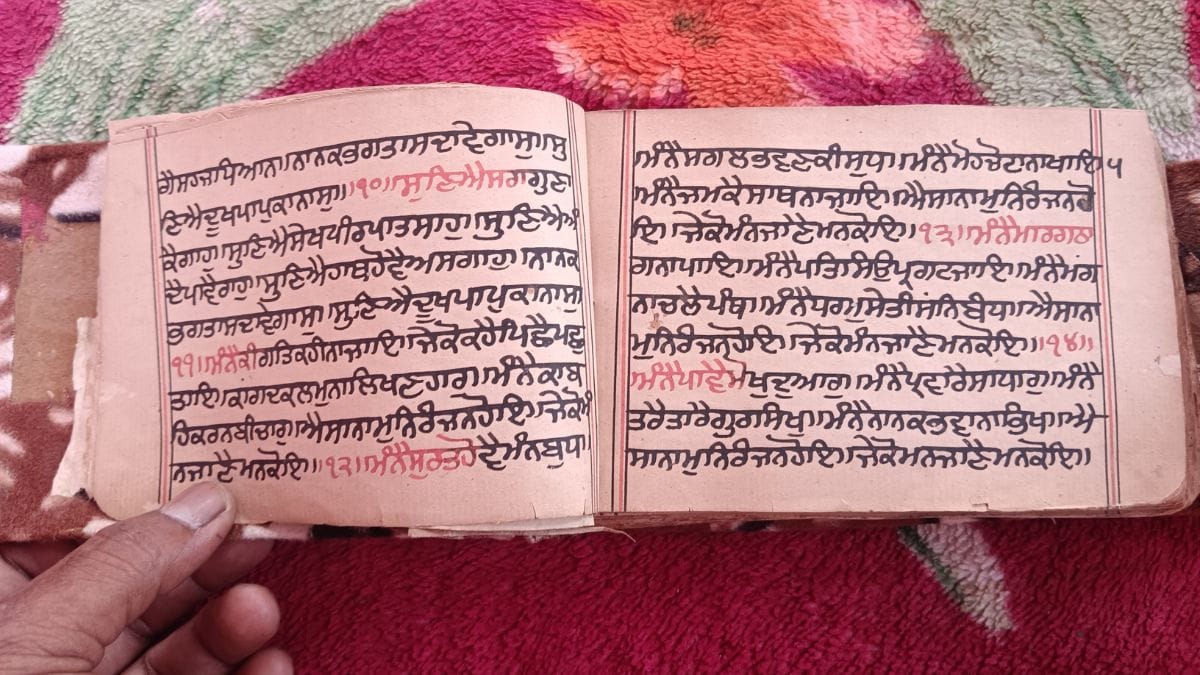 ਗੈਸਹਜਧਿਆਨਾ।ਨਾਨਕਭਗਤਾਸਦਾਵੇਗਾਸੁ।ਸੁ
ਣਿਐਦੂਖਪਾਪੁਕਾਨਾਸੁ॥੧੦॥ਸੁਣਿਐਸਰਾਗੁਣਾ
ਕੈਗਾਹ।ਸੁਣਿਐਸੇਖਪੀਰਪਾਤਸਾਹੁ।ਸੁਣਿਐਅੰ
ਦੈਪਾਵੈਰਾਹੁ।ਸੁਣਿਐਹਾਥਹੋਵੈਅਸਗਾਹੁ।ਨਾਨਕ
ਭਗਤਾਸਦਾਵੇਗਾਸੁ।ਸੁਣਿਐਦੂਖਪਾਪੁਕਾਨਾਸੁ।
੧੧॥ਮੰਨੈਕੀਗਤਿਕਹੀਨਾਜਾਇ।ਜੇਕੋਕਹੈਪਿਛੈਪਛੁ
ਤਾਇ।ਕਾਗਦਕਲਮੁਨਾਲਿਖਣਹਾਰੁ।ਮੰਨੈਕਾਬ
ਹਿਕਰਨਬੀਚਾਰੁ।ਐਸਾਨਾਮੁਨਿਰੰਜਨਹੋਇ।ਜੇਕੋਮੰ
ਨਜਾਣੈਮਨਕੋਇ॥੧੨॥ਮੰਨੈਸੁਰਤਹੋਵੈਮੰਨਬੁਧਾ।
।ਮੰਨੈਸਗਲਭਵਣਕੀਸੁਧਾ।ਮੰਨੈਮੋਹਚੋਟਨਾਖਾਇ।੫
।ਮੰਨੈਜਮਕੈਸਾਥਨਾਜਾਇ।ਐਸਾਨਾਮੁਨਿਰੰਜਨਹੋ
ਇ।ਜੇਕੋਮੰਨਜਾਣੈਮਨਕੋਇ॥੧੩॥ਮੰਨੈਮਾਰਗਠਾ
ਗਨਾਪਾਇ।ਮੰਨੈਪਤਿਸਿਉਪ੍ਰਗਟਜਾਇ।ਮੰਨੈਮਗ
ਨਾਚਲੈਪੰਥਾ।ਮੰਨੈਧਰਮੁਸੇਤੀਸੰਨਿਬੰਧਾ।ਐਸਾਨਾ
ਮੁਨਿਰੰਜਨਹੋਇ।ਜੇਕੋਮੰਨਜਾਣੈਮਨਕੋਇ॥੧੪॥
।ਮੰਨੈਪਾਵੈਮੋਖੁਦੁਆਰੁ।ਮੰਨੈਪ੍ਰਵਾਰੈਸਾਧਾਰੁ।ਮੰਨੈ
ਤਰੈਤਾਰੈਗੁਰਸਿਖੁ।ਮੰਨੈਨਾਨਕਭਵਾਨਾਭਿਖਾ।ਐ
ਸਾਨਾਮੁਨਿਰੰਜਨਹੋਇ।ਜੇਕੋਮਨਜਾਣੈਮਨਕੋਇ॥